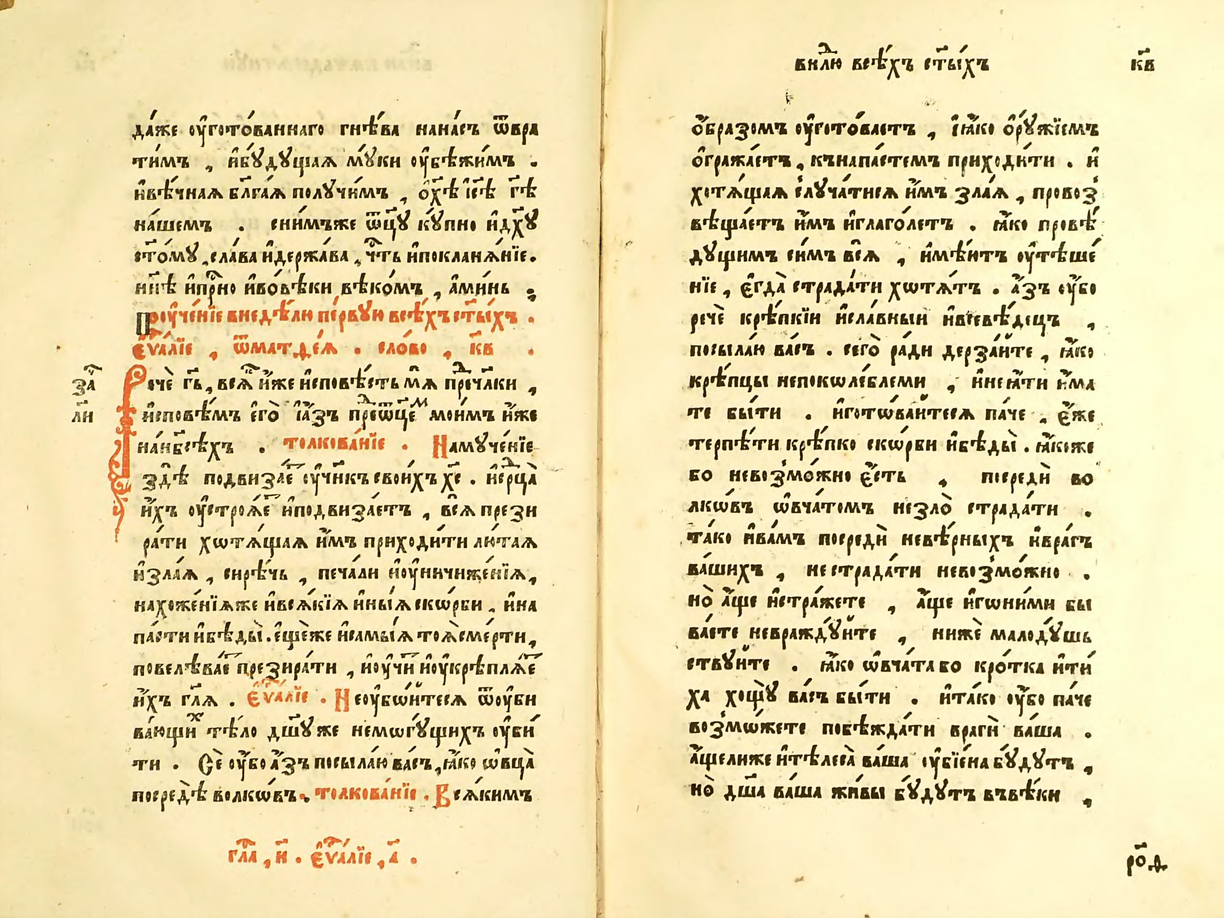 да́же ᲂу҆гото́ваннаго гнѣ́ва нана́съ ѿвра
тимъ , и҆бꙋ́дꙋщаѧ мꙋ́ки ᲂу҆бѣжи́мъ .
и҆вѣ́чнаѧ бл҃га́ѧ полꙋ́чимъ , ѡ҆хѣ і҆с҃ѣ гд҇ѣ
на́шемъ . снимъже ѿц҃ꙋ кꙋ́пно и҆дх҃ꙋ
ст҃о́мꙋ , сла́ва и҆держа́ва , чт҇ь и҆покланѧ́нїе .
нн҃ѣ и҆при҇но и҆вовѣ́ки вѣко́мъ , а҆ми́нь ;
Поꙋче́нїе внедѣ́лю пе́рвꙋю всѣ́хъ ст҃ы́хъ .
є҆ѵⷢ҇а́лїе , ѿматѳе́ѧ . сло́во , к҃в .
за҃
ли
Речѐ гд҇ь , всѧ́къ и҆́же и҆сповѣ́сть мѧ̀ пре́дчл҃ки ,
и҆сповѣ́мъ е҆го̀ і҆а҆́зъ предѿц҃емъ мои́мъ и҆́же
нан҃бсѣ́хъ . толкова́нїе . Намꙋче́нїе
здѣ̀ подвиза́етъ ᲂу҆чн҃къ свои́хъ хс҃ . и҆срⷣца̀
и҆́хъ ᲂу҆строѧ́етъ и҆подвиза́етъ , всѧ̀ прези
ра́ти хотѧ́щаѧ и҆̀мъ приходи́ти лю́таѧ
и҆зла́ѧ , сирѣ́чь , печа́ли и҆ᲂу҆ничиже́нїѧ ,
нахоже́нїѧже и҆всѧ́кїѧ и҆ны́ѧ ско́рби , и҆на
па́сти и҆бѣды̀ . є҆ще́же и҆самы́ѧ тоѧ̀ сме́рти ,
повелѣва́етъ презира́ти , и҆ᲂу҆чи́тъ и҆ᲂу҆крѣплѧ́етъ
и҆́хъ гл҃ѧ . є҆ѵⷢ҇а́лїе . Не ᲂу҆бо́йтесѧ ѿᲂу҆би
ва́ющихъ тѣ́ло дш҃ꙋже немогꙋ́щихъ ᲂу҆би́
ти . Сѐ ᲂу҆́бо а҆́зъ посыла́ю ва́съ , ꙗ҆́ко ѻ҆вца̀
посредѣ̀ волкѡ́въ . толкова́нїе . Всѧ́кимъ
гл҃а , и҃ . є҆ѵⷢ҇а́лїе , д҃ .
внедⷧ҇ю всѣ́хъ ст҃ы́хъ к҃в
ѻ҆́бразомъ ᲂу҆гото́ваетъ , і҆ꙗ҆́ко ѻ҆рꙋ́жїемъ
ѻ҆гража́етъ , кънапа́стемъ приходи́ти . и҆
хотѧ́щаѧ слꙋча́тисѧ и҆̀мъ зла́ѧ , провоз
вѣща́етъ и҆̀мъ и҆глаго́летъ . ꙗ҆́ко провѣ́
дꙋщимъ си́мъ всѧ̀ , и҆мѣ́итъ ᲂу҆тѣше́
нїе , є҆гда̀ страда́ти хотѧ́тъ . а҆́зъ ᲂу҆́бо
речѐ крѣ́пкїи и҆сла́вныи и҆всевѣ́децъ ,
посыла́ю ва́съ . сего̀ ра́ди дерза́ите , ꙗ҆́ко
крѣ́пцы непоколѣ́блеми , и҆неꙗ҆́ти и҆́ма
те бы́ти . и҆гото́ваитесѧ па́че . є҆́же
терпѣ́ти крѣ́пко ско́рби и҆бѣды̀ . ꙗ҆́коже
бо невозмо́жно є҆́сть , посредѝ во
лкѡ́въ ѻ҆вча́томъ незло̀ страда́ти .
та́ко и҆ва́мъ посредѝ невѣ́рныхъ и҆вра́гъ
ва́шихъ , не страда́ти невозмо́жно .
но̀ а҆́ще и҆стра́жете , а҆́ще и҆гони́ми бы
ва́ете невражд́ꙋйте , нижѐ малодꙋ́шь
ствꙋ́йте . ꙗ҆́ко ѻ҆вча́та бо кро́тка и҆ти́
ха хощꙋ̀ ва́съ бы́ти . и҆та́ко ᲂу҆́бо па́че
возмо́жете побѣжда́ти врагѝ ва́ша .
а҆́щелиже и҆тѣлеса̀ ва́ша ᲂу҆бїе́на бꙋ́дꙋтъ ,
но̀ дш҃а ва́ша жи́вы бꙋ́дꙋтъ въвѣ́ки ,